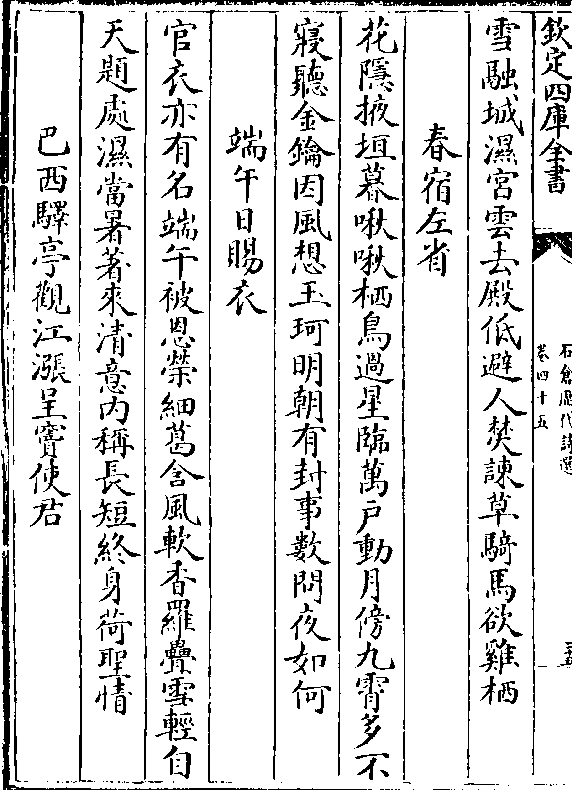 欽定四庫全書
石倉歷代詩選
卷四十五
雪融城濕宮雲去殿低避人焚諫草騎馬欲雞栖
春宿左省
花隱掖垣暮啾啾栖鳥過星臨萬戶動月傍九霄多不
寢聽金鑰因風想玉珂明朝有封事數問夜如何
端午日賜衣
官衣亦有名端午被恩榮細葛含風軟香羅疊雪輕自
天題處濕當暑著來清意内稱長短終身荷聖情
巴西驛亭觀江漲呈竇使君